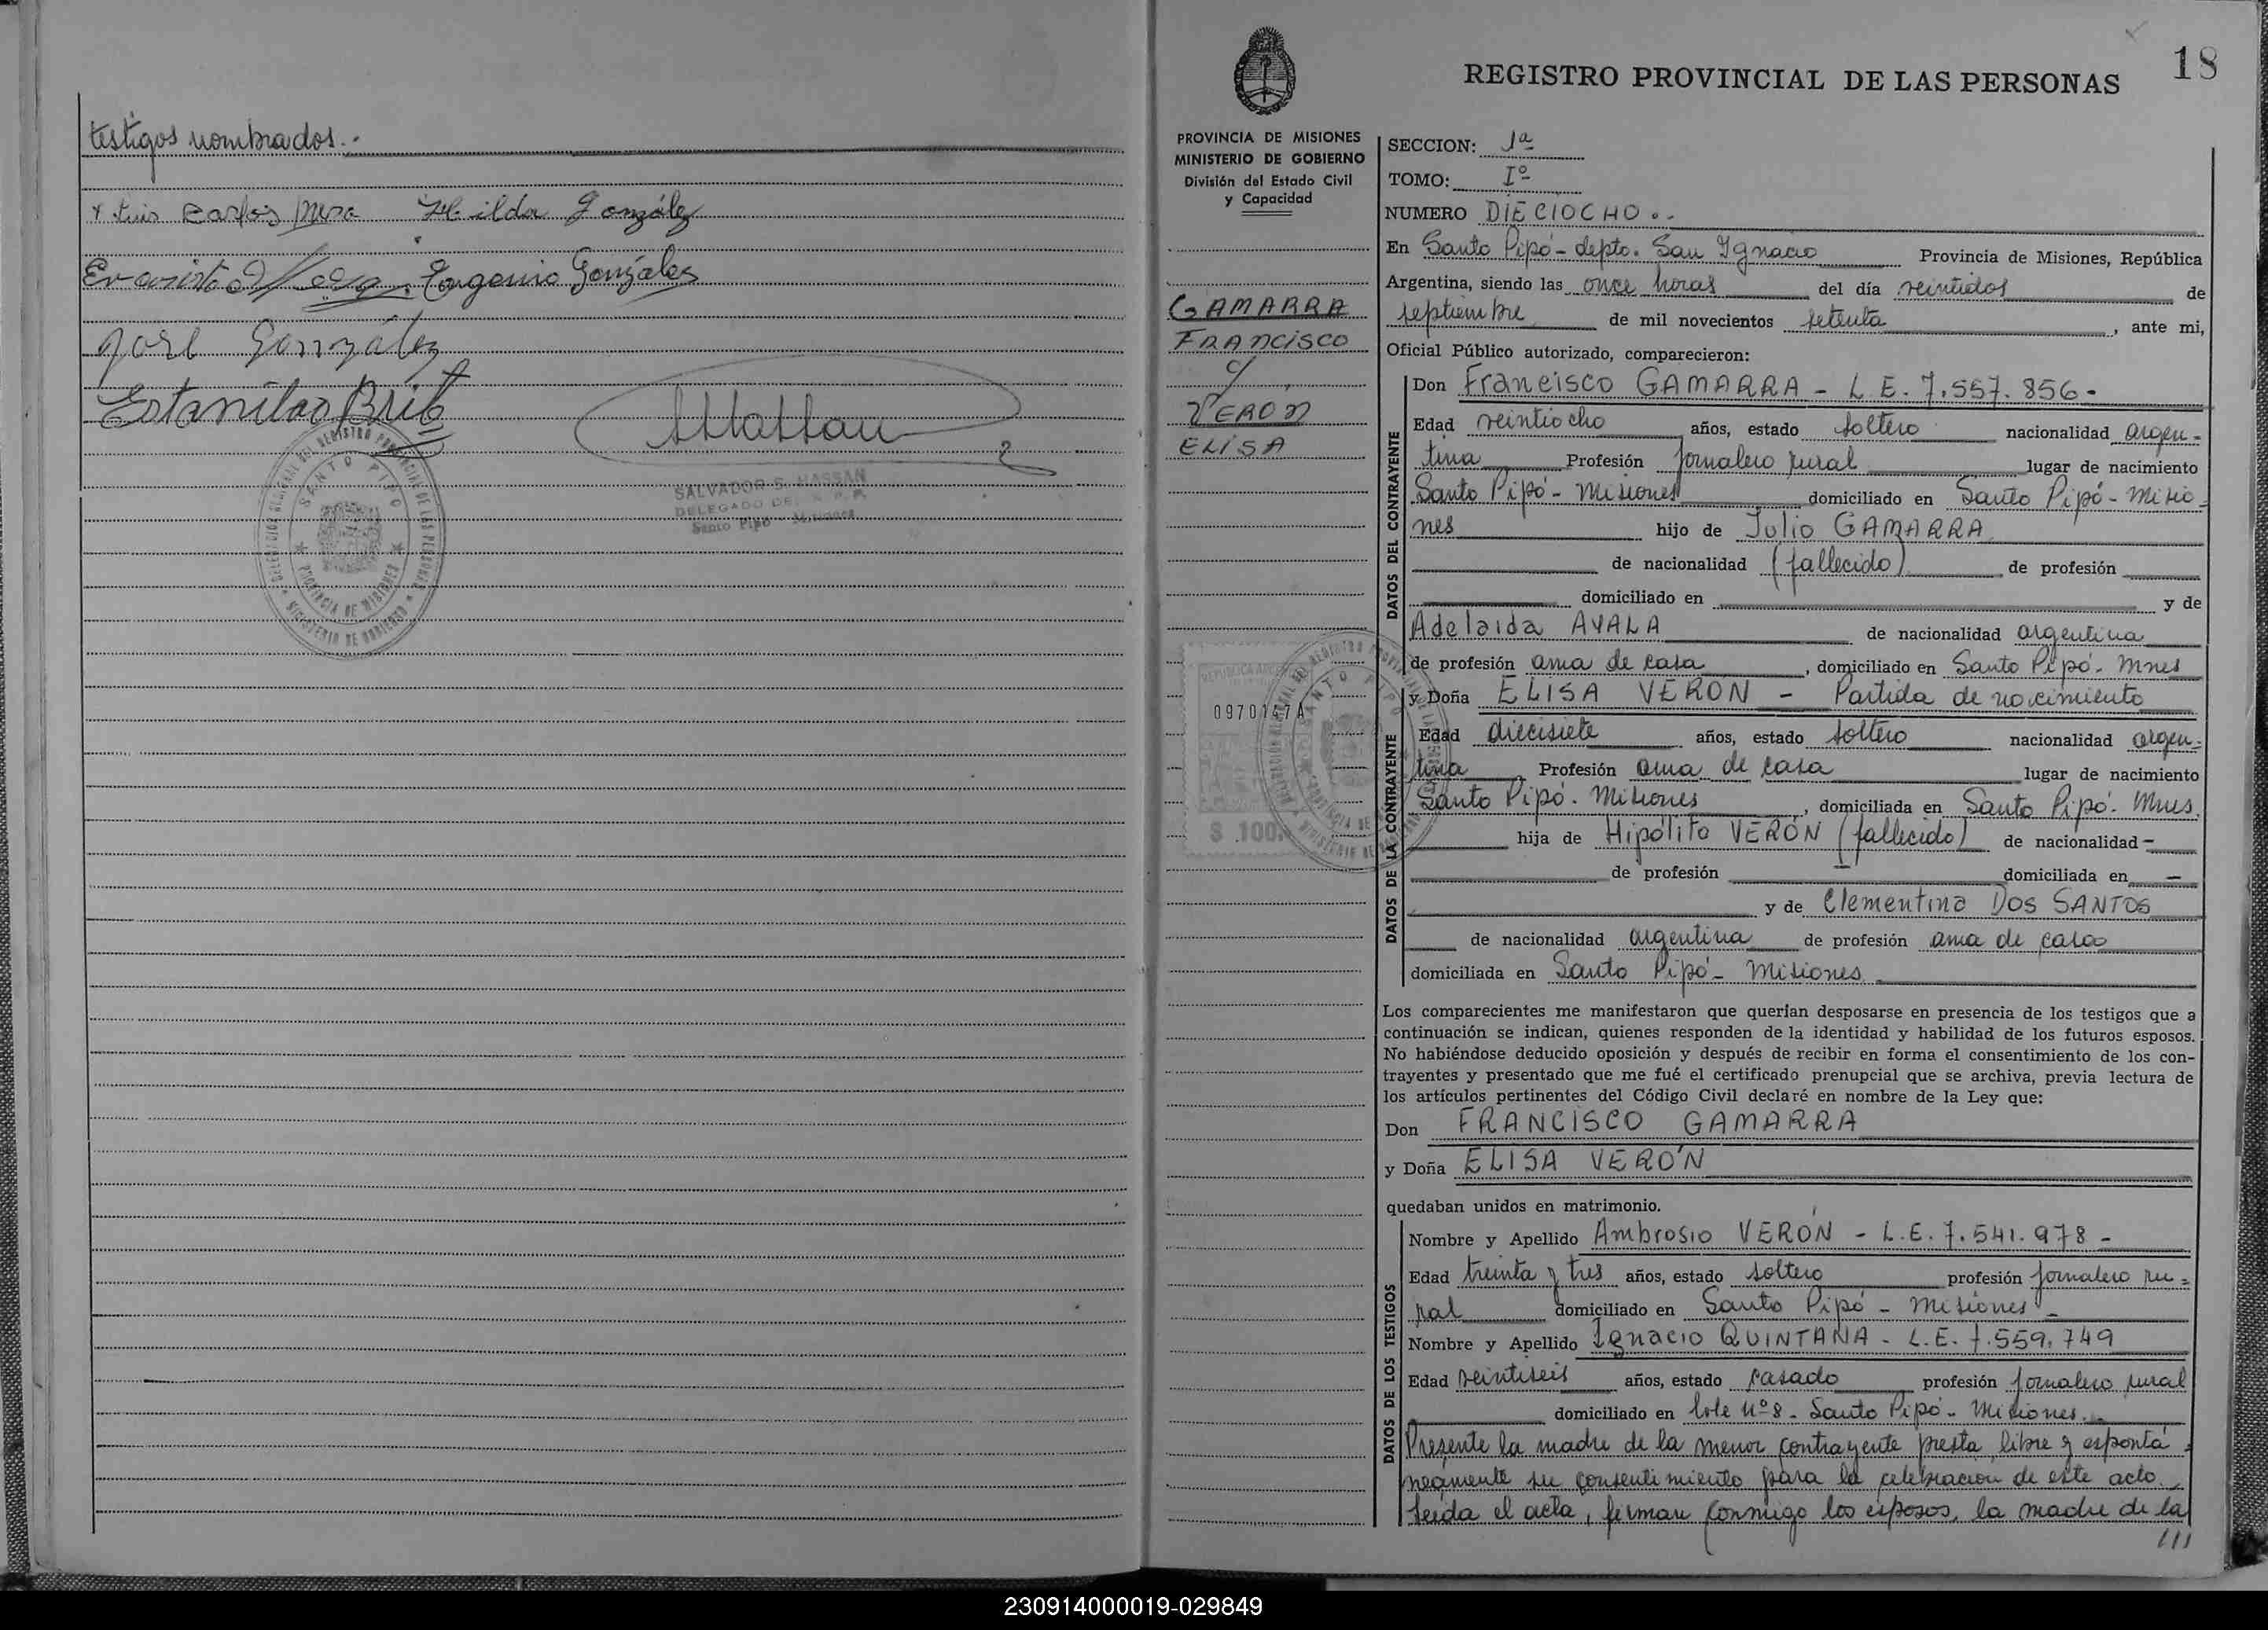 testigos nombrados.-
x Luis Carlos Mera Hilda González
Evaristo Mera. Eugenio Gonzáles
José González
Estanilao Brit
SALVADOR S. HASSAN
DELEGADO DEL R. P. P.
Santo Pipó - Misiones
DELEGACION SECCIONAL DEL REGISTRO PROVINCIAL DE LAS PERSONAS
SANTO PIPO
PROVINCIA DE MISIONES
MINISTERIO DE GOBIERNO
18
REGISTRO PROVINCIAL DE LAS PERSONAS
PROVINCIA DE MISIONES
MINISTERIO DE GOBIERNO
División del Estado Civil
y Capacidad
GAMARRA
FRANCISCO
c/
VERÓN
ELISA
REPUBLICA
0970147A
$ 100
SECCION: 1ª
TOMO: Iº
NUMERO DIECIOCHO..-
En Santo Pipó - depto. San Ignacio Provincia de Misiones, República
Argentina, siendo las once horas del día veintidos de
septiembre de mil novecientos setenta, ante mi,
Oficial Público autorizado, comparecieron:
DATOS DEL CONTRAYENTE
Don Francisco GAMARRA - L.E. 7.557.856-
Edad veintiocho años, estado soltero nacionalidad argen-
tina Profesión jornalero rural lugar de nacimiento
Santo Pipó - Misiones domiciliado en Santo Pipó - Misio-
nes hijo de Julio GAMARRA
de nacionalidad (fallecido) de profesión
domiciliado en y de
Adelaida AYALA de nacionalidad argentina
de profesión ama de casa, domiciliado en Santo Pipó - Mnes
DATOS DE LA CONTRAYENTE
y Doña ELISA VERON - Partida de nacimiento
Edad diecisiete años, estado soltero nacionalidad argen-
tina Profesión ama de casa lugar de nacimiento
Santo Pipó - Misiones, domiciliada en Santo Pipó - Mnes.
hija de Hipólito VERÓN (fallecido) de nacionalidad -
de profesión - domiciliada en -
y de Clementina DOS SANTOS
de nacionalidad argentina de profesión ama de casa
domiciliada en Santo Pipó - Misiones
Los comparecientes me manifestaron que querían desposarse en presencia de los testigos que a
continuación se indican, quienes responden de la identidad y habilidad de los futuros esposos.
No habiéndose deducido oposición y después de recibir en forma el consentimiento de los con-
trayentes y presentado que me fué el certificado prenupcial que se archiva, previa lectura de
los artículos pertinentes del Código Civil declaré en nombre de la Ley que:
Don FRANCISCO GAMARRA
y Doña ELISA VERÓN
quedaban unidos en matrimonio.
DATOS DE LOS TESTIGOS
Nombre y Apellido Ambrosio VERÓN - L.E. 7.541.978 -
Edad treinta y tres años, estado soltero profesión jornalero ru-
ral domiciliado en Santo Pipó - Misiones -
Nombre y Apellido Ignacio QUINTANA - L.E. 7.559.749
Edad veintiseis años, estado casado profesión jornalero rural
domiciliado en lote nº 8 - Santo Pipó - Misiones.-
Presente la madre de la menor contrayente presta libre y espontá-
neamente su consentimiento para la celebración de este acto.-
Leída el acta, firman conmigo los esposos, la madre de la
///
230914000019-029849